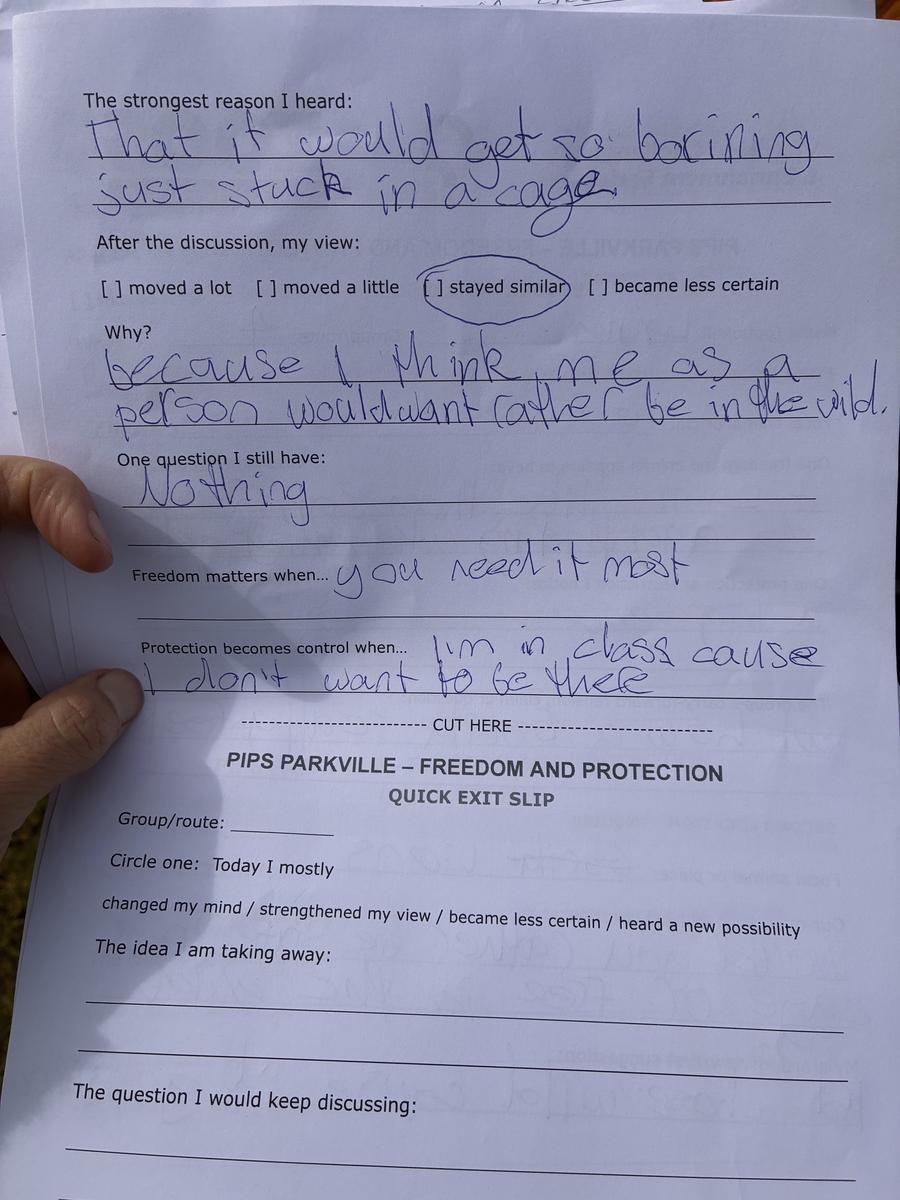 The strongest reason I heard:
That it would get so borining
just stuck in a cage.
After the discussion, my view:
[ ] moved a lot [ ] moved a little [ ] stayed similar [ ] became less certain
Why?
because I think me as a
person would want rather be in the wild.
One question I still have:
Nothing
Freedom matters when... you need it most
Protection becomes control when... I'm in class cause
I don't want to be there
--------------------------- CUT HERE ----------------------------
PIPS PARKVILLE – FREEDOM AND PROTECTION
QUICK EXIT SLIP
Group/route: __________
Circle one: Today I mostly
changed my mind / strengthened my view / became less certain / heard a new possibility
The idea I am taking away:
The question I would keep discussing: